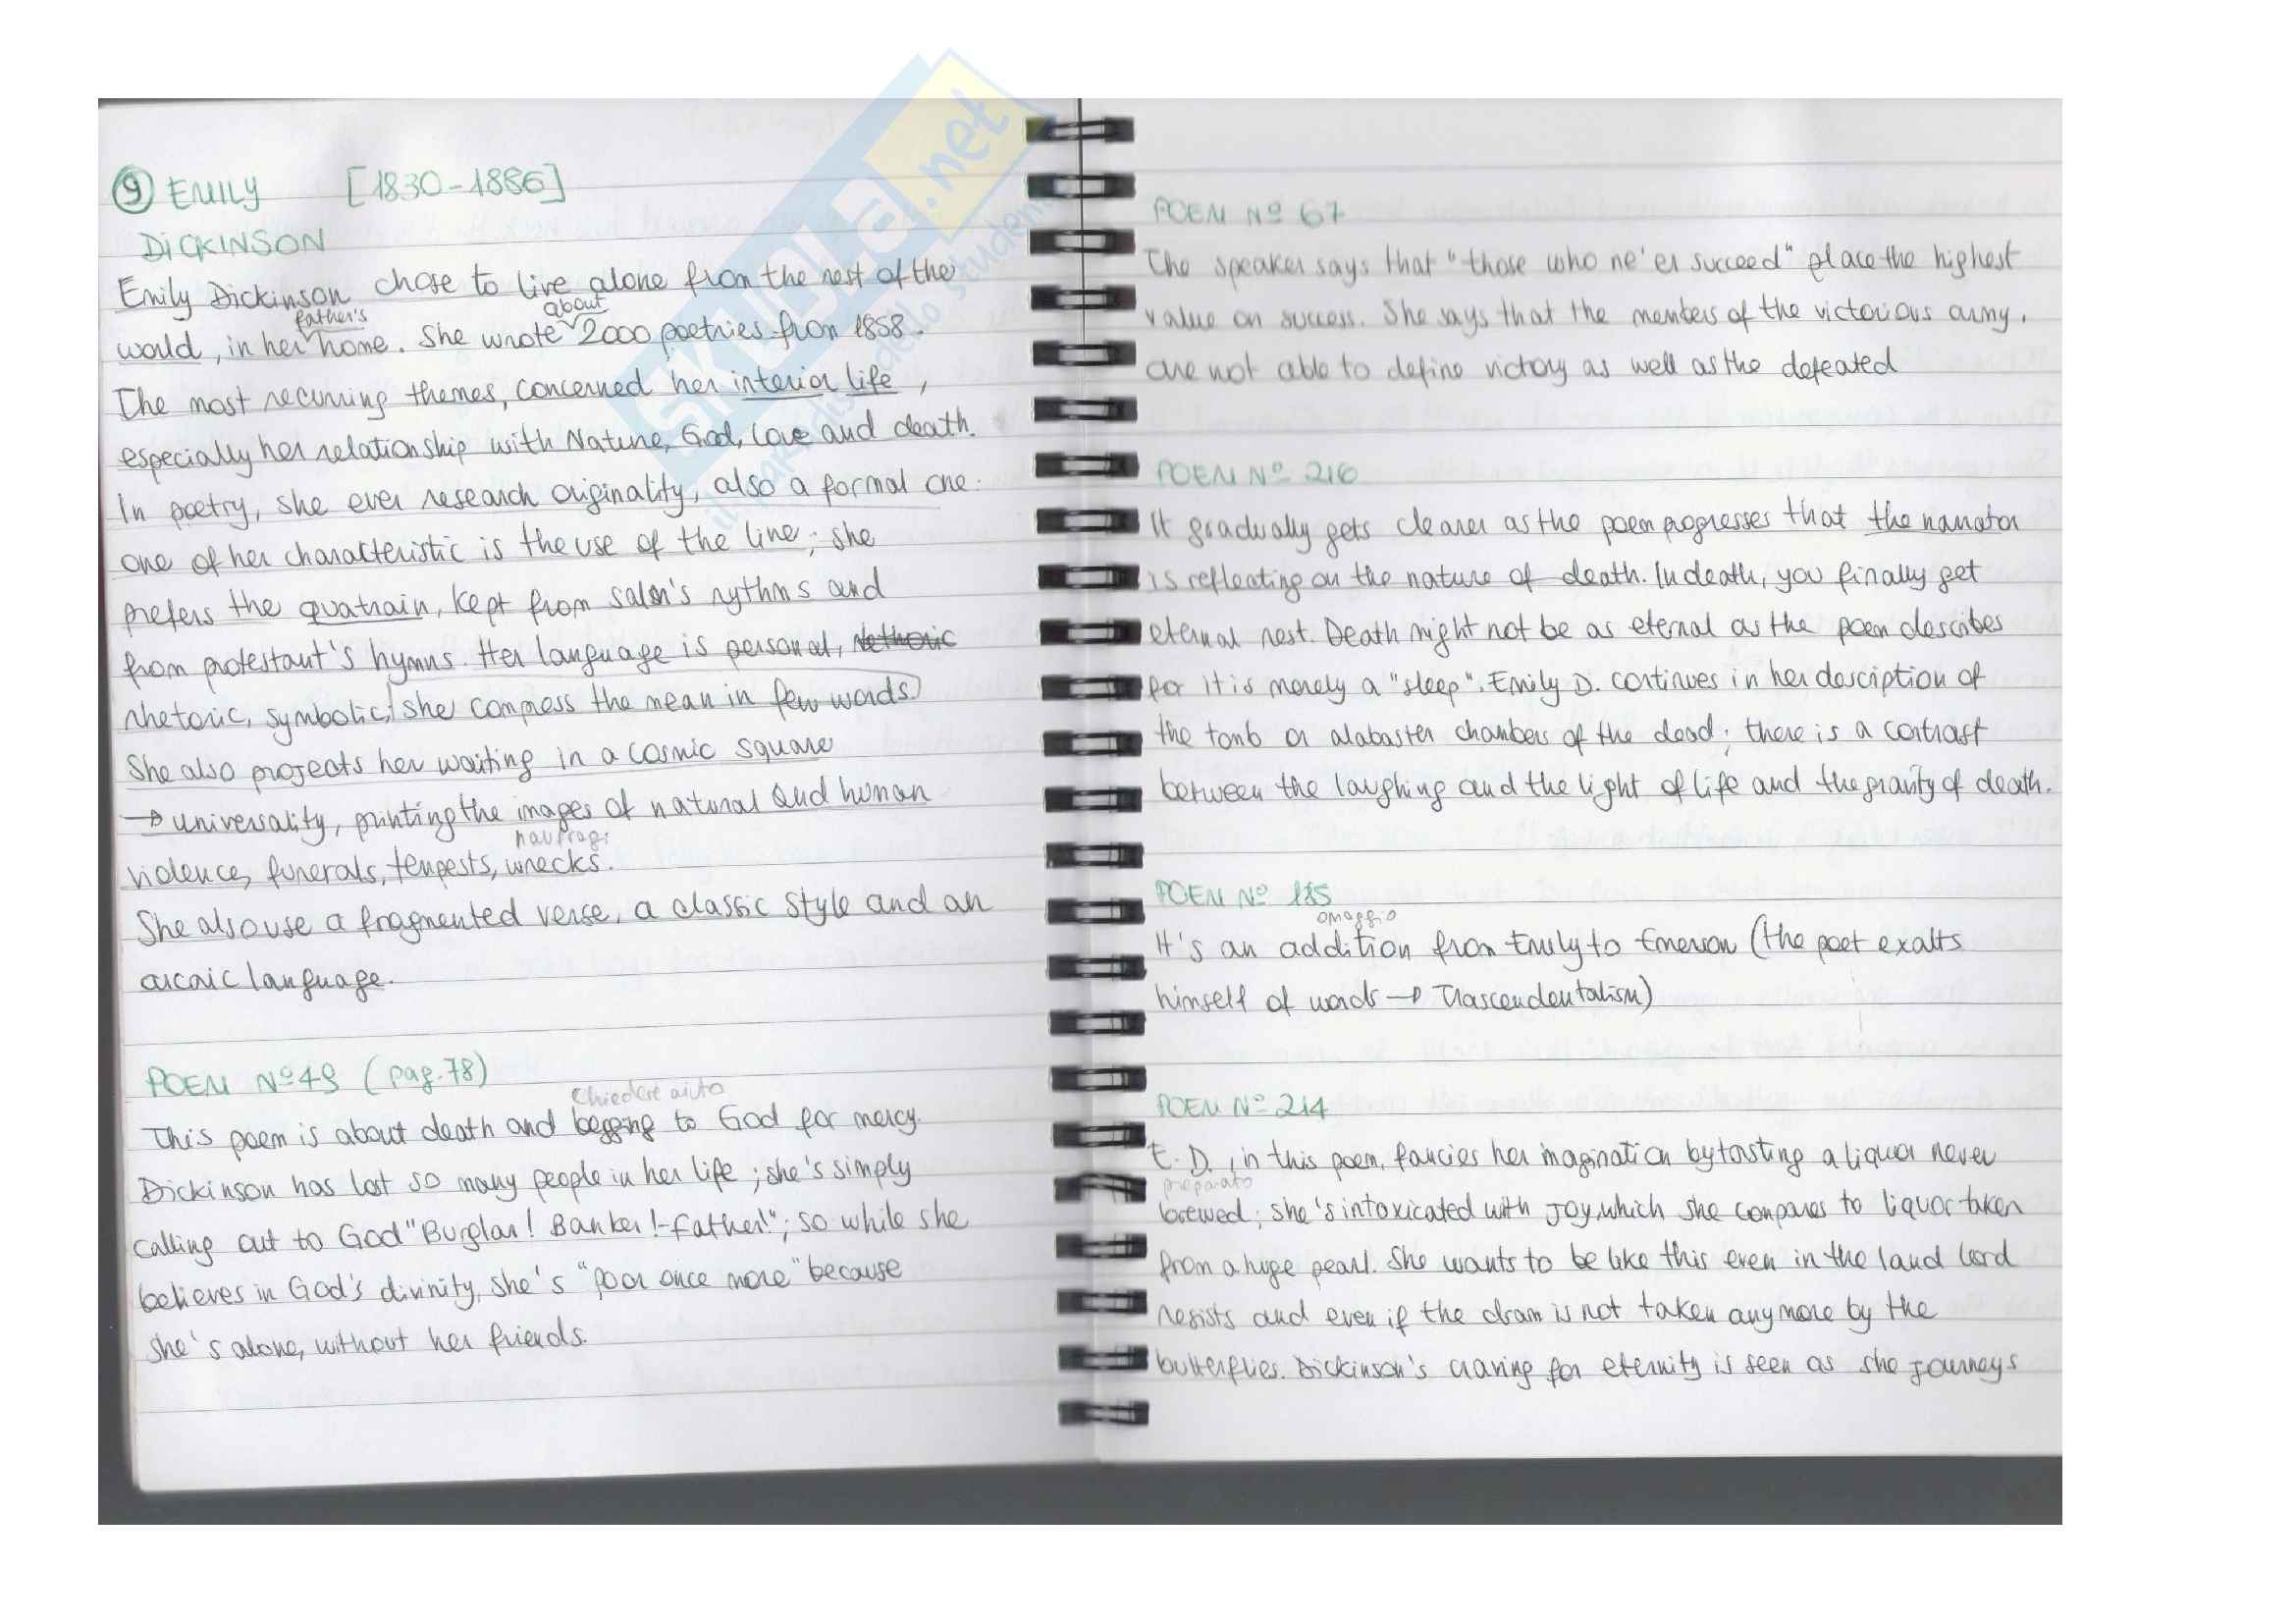 9 EMILY [1830-1886]
DICKINSON
Emily Dickinson chose to live alone from the rest of the
father's about
world, in her home. She wrote 2000 poetries from 1858.
The most recurring themes, concerned her interior life,
especially her relationship with Nature, God, love and death.
In poetry, she ever research originality, also a formal one.
one of her characteristic is the use of the line; she
prefers the quatrain, kept from salm's rythms and
from protestant's hymns. Her language is personal,
rhetoric, symbolic, she compress the mean in few words.
She also projects her waiting in a cosmic square
→ universality, printing the images of natural and human
naufragi
violence, funerals, tempests, wrecks.
She also use a fragmented verse, a classic style and an
arcaic language.
POEM Nº 49 (pag. 78)
Chiedere aiuto
This poem is about death and begging to God for mercy.
Dickinson has lost so many people in her life; she's simply
calling out to God "Burglar! Banker!-Father!"; so while she
believes in God's divinity, she's "poor once more" because
she's alone, without her friends.
POEM Nº 67
The speaker says that "those who ne'er succeed" place the highest
value on success. She says that the members of the victorious army.
are not able to define victory as well as the defeated
POEM Nº 216
It gradually gets clearer as the poem progresses that the narrator
is reflecting on the nature of death. In death, you finally get
eternal rest. Death might not be as eternal as the poem describes
for it is merely a "sleep". Emily D. continues in her description of
the tomb or alabaster chambers of the dead; there is a contrast
between the laughing and the light of life and the gravity of death.
POEM Nº 185
omaggio
It's an addition from Emily to Emerson (the poet exalts
himself of words → Trascendentalism)
POEM Nº 214
E. D., in this poem, fancies her imagination by tasting a liquor never
preparato
brewed; she's intoxicated with joy, which she compares to liquor taken
from a huge pearl. She wants to be like this even in the land lord
resists and even if the dram is not taken anymore by the
butterflies. Dickinson's craving for eternity is seen as she journeys
SKUOLA.net